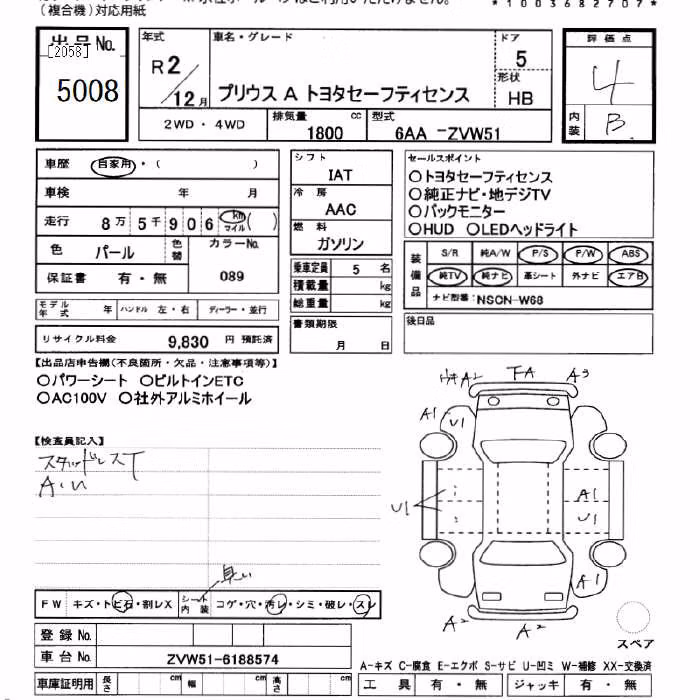 (複合機)対応用紙
*1003682707*
出品No.
[2058]
5008
年式
R2/12月
車名・グレード
プリウス A トヨタセーフティセンス
ドア
5
形状
HB
評価点
4
内装
B
2WD・4WD
排気量
1800 cc
型式
6AA -ZVW51
車歴 自家用・( )
車検 年 月
走行 8万 5千 9 0 6 km マイル ( )
色 パール 色替 カラーNo.
089
保証書 有・無
モデル年式 年 ハンドル 左・右 ディーラー・並行
リサイクル料金 9,830 円 預託済
シフト
IAT
冷房
AAC
燃料
ガソリン
乗車定員 5 名
積載量 kg
総重量 kg
書類期限
月 日
セールスポイント
○トヨタセーフティセンス
○純正ナビ・地デジTV
○バックモニター
○HUD ○LEDヘッドライト
装備品
S/R 純A/W P/S P/W ABS
純TV 純ナビ 革シート 外ナビ エアB
ナビ型番: NSCN-W68
後日品
【出品店申告欄(不良箇所・欠品・注意事項等)】
○パワーシート ○ビルトインETC
○AC100V ○社外アルミホイール
【検査員記入】
スタッドレスT
A・U
臭い
FW キズ・トビ石・割レX シート内装 コゲ・穴・汚レ・シミ・破レ・スレ
登録No.
車台No. ZVW51-6188574
車庫証明用 長さ cm 幅 cm 高さ cm
A2 FA A3
A1 U1
U1
A1
U1
A1
A2 A2
スペア
A-キズ C-腐食 E-エクボ S-サビ U-凹ミ W-補修 XX-交換済
工具 有・無 ジャッキ 有・無